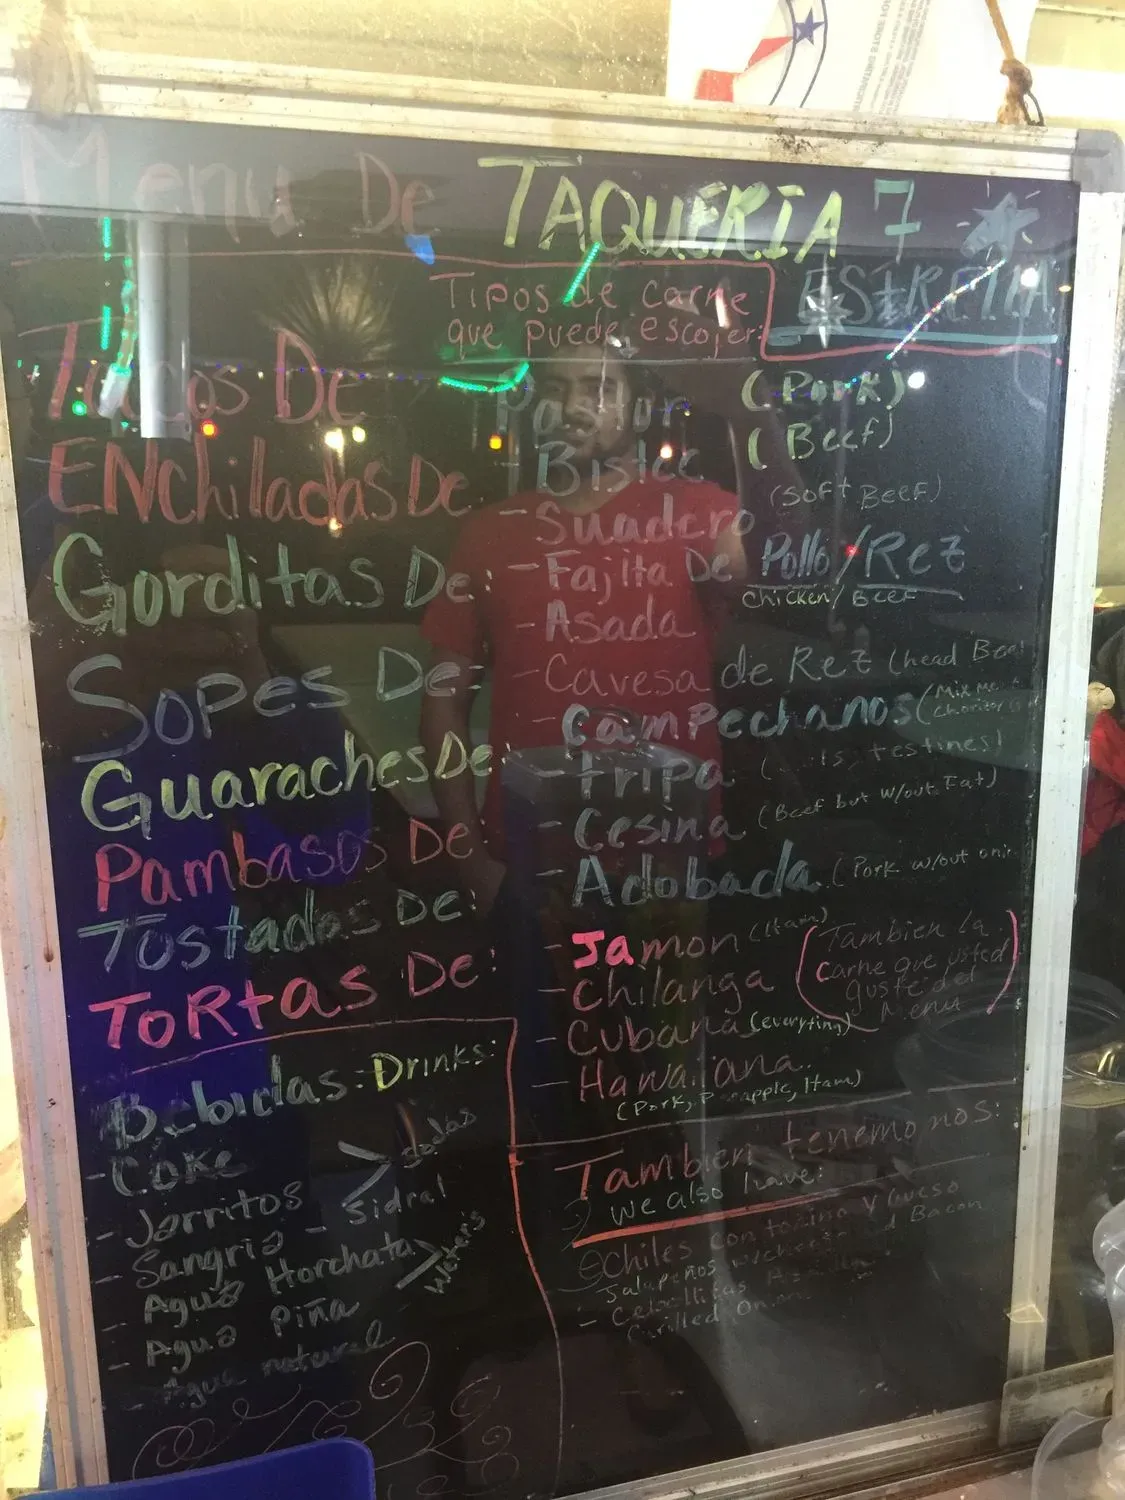 Menu De TAQUERIA 7
ESTRELLA
Tipos de carne
que puede escojer:
Tacos De
ENchiladas De
Gorditas De:
Sopes De:
Guaraches De:
Pambasos De:
Tostadas De:
TORtas De:
- Pastor (Pork)
- Bistec (Beef)
- Suadero (Soft Beef)
- Fajita De Pollo/Rez
Chicken/Beef
- Asada
- Cavesa de Rez (head Beef
- Campechanos (Mix Meat
- Tripa
- Cesina (Beef but w/out Fat)
- Adobada (Pork w/out
- Jamon (Ham)
- Chilanga
(Tambien La
carne que usted
guste del
Menu)
- Cubana (everyting)
- Hawaiiana
(Pork, Pineapple, Ham)
Bebidas: Drinks:
- Coke
- Jarritos
> Sodas
- Sangria - Sidral
- Agua Horchata
- Agua Piña
> Water's
- Agua natural
Tambien tenemos:
We also have:
Chiles con tocino y Queso
Jalapeños w/cheese and Bacon
- Cebollitas
Grilled Onion